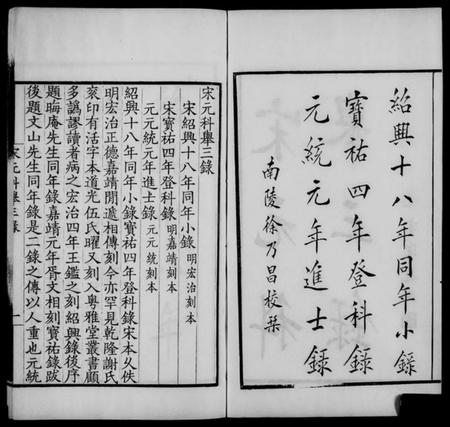 紹興十八年同年小錄
寶祐四年登科錄
元統元年進士錄
南陵徐乃昌校栞
宋元科舉三錄
宋紹興十八年同年小錄 明宏治刻本
宋寶祐四年登科錄 明嘉靖刻本
元元統元年進士錄 元元統刻本
紹興十八年同年小錄寶祐四年登科錄宋本久佚
明宏治正德嘉靖閒遞相傳刻今亦罕見乾隆謝氏
褎印有活字本道光伍氏曜又刻入粵雅堂叢書顧
多譌謬讀者病之宏治四年王鑑之刻紹興錄後序
題晦庵先生同年錄嘉靖元年胥文相刻寶祐錄跋
後題文山先生同年錄是二錄之傳以人重也元統
宋元科舉三錄
一